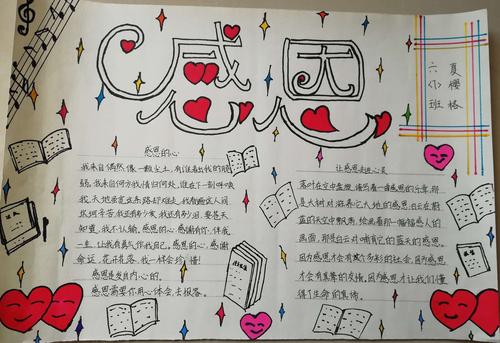 感恩
夏樱格
六(1)班
感恩的心
我来自偶然像一颗尘土,有谁看出我的脆
弱。我来自何方我情归何处,谁在下一刻呼唤
我。天地虽宽这条路却难走,我看遍这人间
坎坷辛苦,我还有多少爱,我还有多少泪,要苍天
知道,我不认输。感恩的心,感谢有你,伴我
一生,让我有勇气作我自己,感恩的心,感谢
命运,花开花落,我一样会珍惜!
感恩是发自内心的。
感恩需要你用心体会,去报答。
让感恩走进心灵
落叶在空中盘旋,谱写着一曲感恩的乐章,那
是大树对滋养它大地的感恩;白云在蔚
蓝的天空中飘荡,绘画着那一幅幅感人的
画面,那是白云对哺育它的蓝天的感恩。
因为感恩才会有这个多彩的社会,因为感恩
才会有真挚的友情,因为感恩才让我们懂
得了生命的真谛。